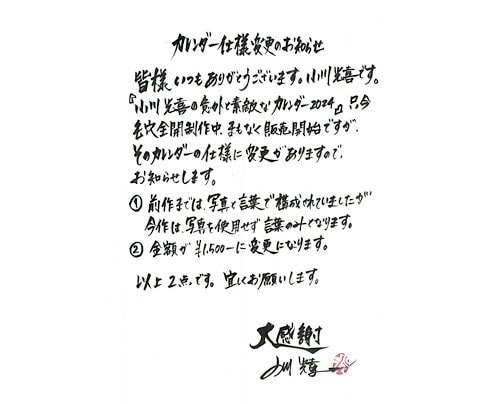 カレンダー仕様変更のお知らせ
皆様いつもありがとうございます。小川光喜です。
『小川光喜の意外と素敵なカレンダー2024』只今
毛穴全開制作中。まもなく販売開始ですが、
そのカレンダーの仕様に変更がありますので、
お知らせします。
① 前作までは、写真と言葉で構成されていましたが
今作は、写真を使用せず言葉のみとなります。
② 金額が¥1,500-に変更になります。
以上2点です。宜しくお願いします。
大感謝
小川